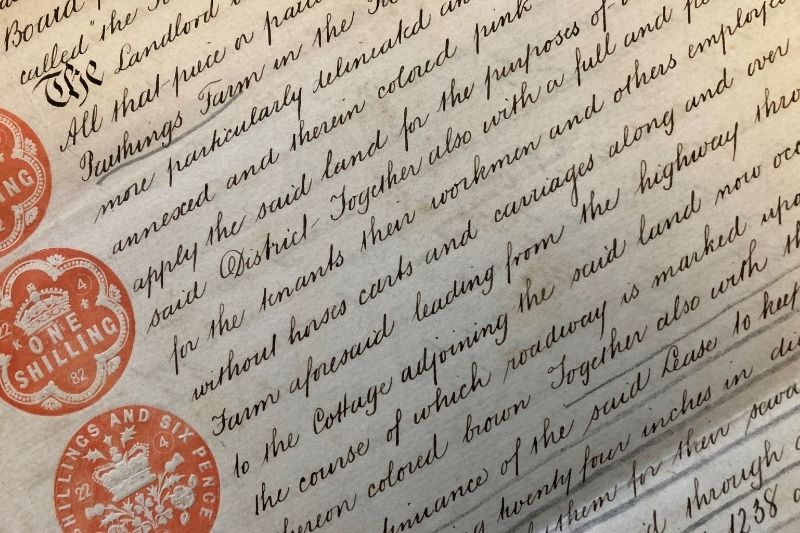 Board
called "the
The Landlord
All that piece or
Parthings Farm in the
more particularly delineated
annexed and therein colored pink
apply the said land for the purposes of
said District Together also with a full and
for the tenants their workmen and others employed
without horses carts and carriages along and over
Farm aforesaid leading from the highway
to the Cottage adjoining the said land now
the course of which roadway is marked
colored brown Together also with
of the said Lease to keep
twenty four inches in
them for their
through
1238
ONE
SHILLING
22
4
K
82
SHILLINGS AND SIX PENCE
22
4